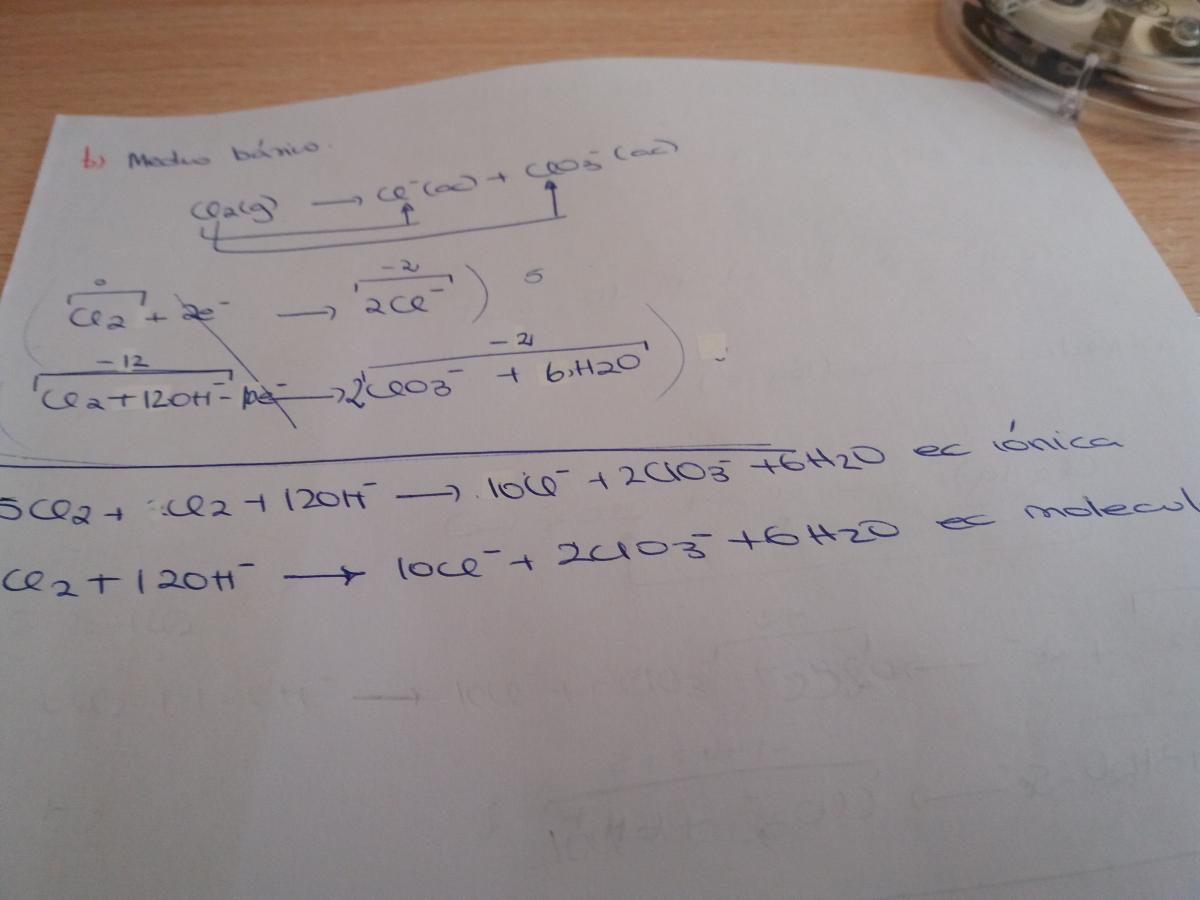 b) Medio básico.
Cl2(g) → Cl⁻(ac) + ClO3⁻(ac)
0 -2
(Cl2 + 2e⁻ → 2Cl⁻) 5
-12 -2
(Cl2 + 12OH⁻ - 10e⁻ → 2ClO3⁻ + 6H2O)
5Cl2 + Cl2 + 12OH⁻ → 10Cl⁻ + 2ClO3⁻ + 6H2O ec iónica
Cl2 + 12OH⁻ → 10Cl⁻ + 2ClO3⁻ + 6H2O ec molecul